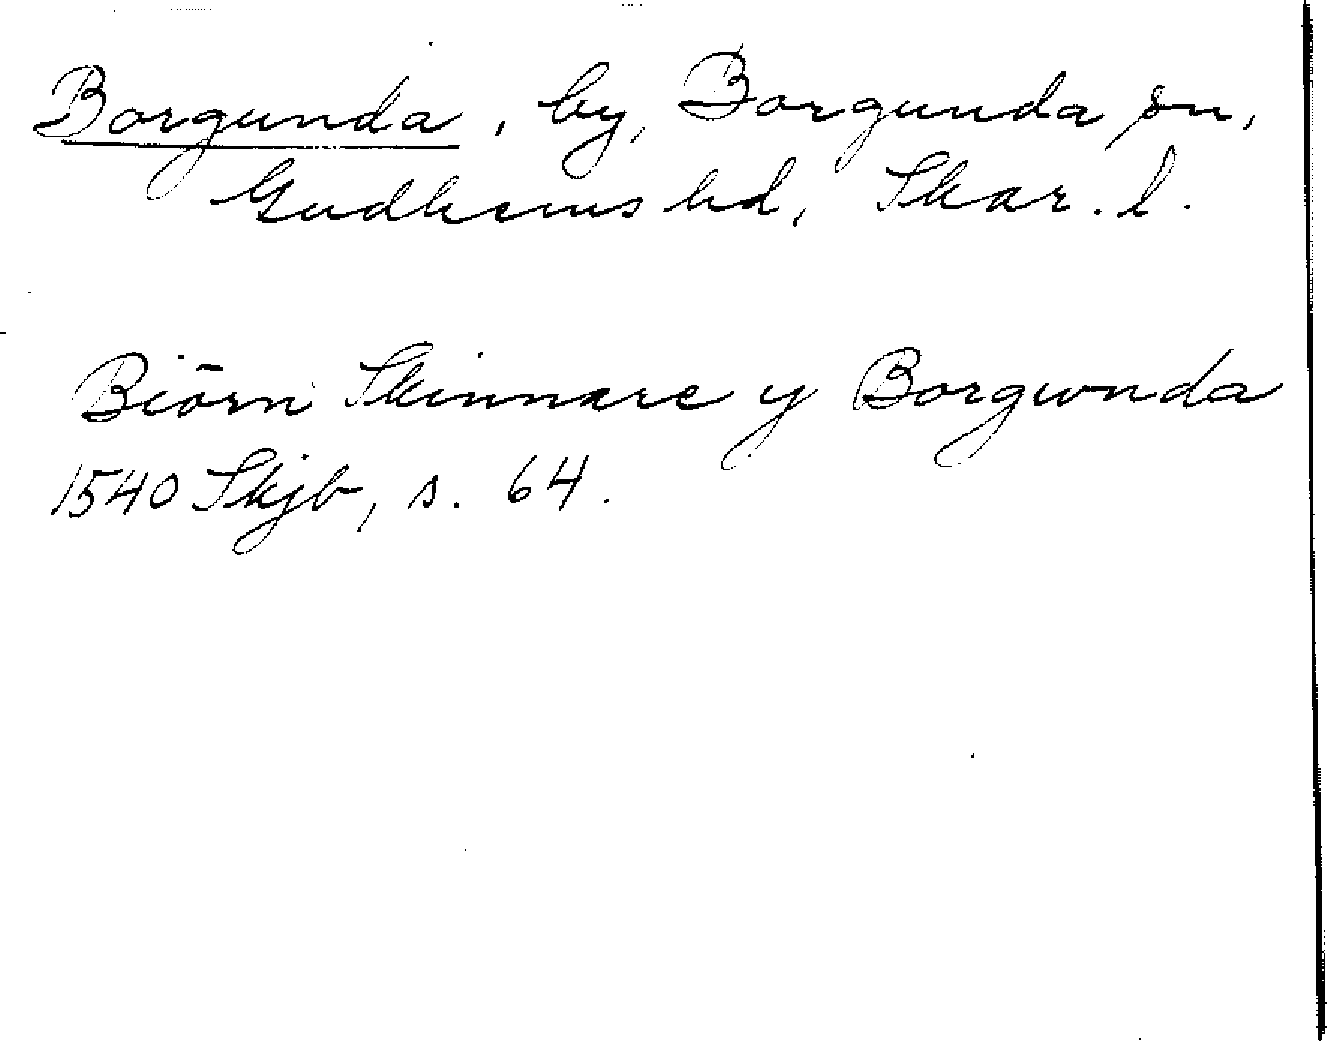 Borgunda, by, Borgunda sn,
Gudhems hd, Skar. l.
Biörn Skinnare y Borgwnda
1540 Skjb, s. 64.